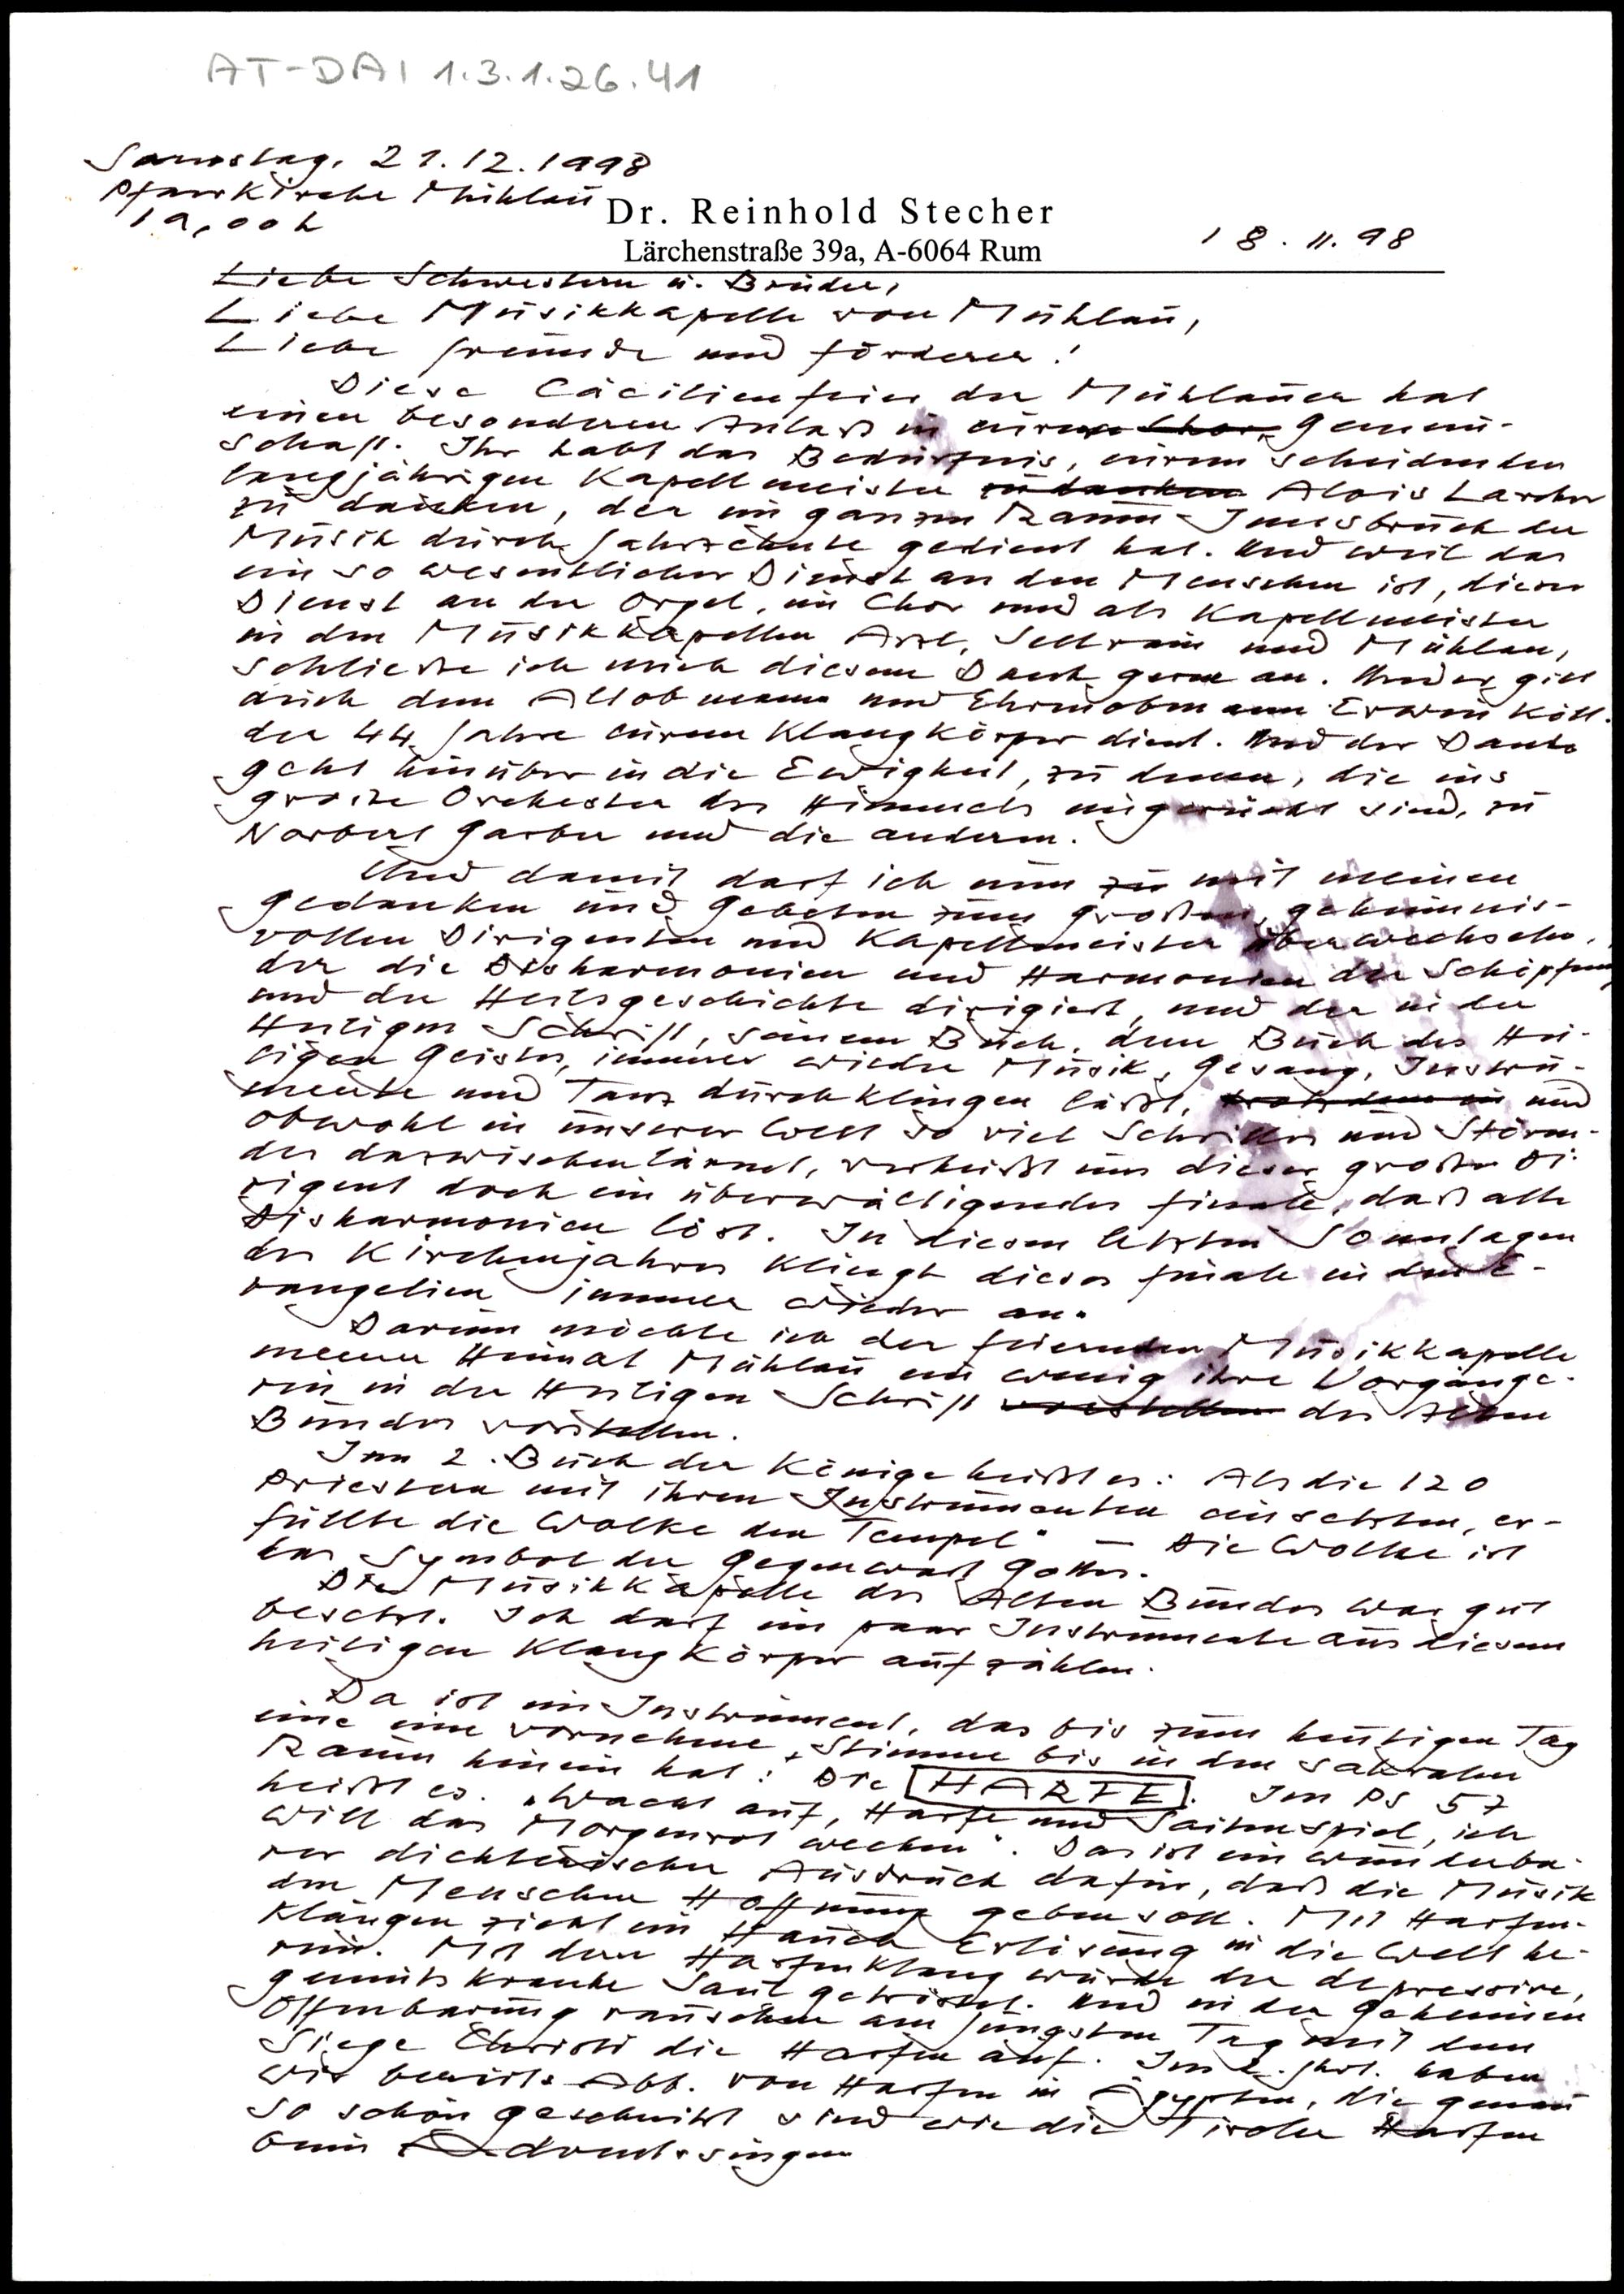 AT-DAI 1.3.1.26.41
Samstag, 21.12.1998
Pfarrkirche Mühlau
19,00 h
Dr. Reinhold Stecher
Lärchenstraße 39a, A-6064 Rum
18.11.98
Liebe Schwestern u. Brüder,
Liebe Musikkapelle von Mühlau,
Liebe Freunde und Förderer!
Diese Cäcilienfeier der Mühlauer hat
einen besonderen Anlaß in eurer Chor Gemein-
schaft. Ihr habt das Bedürfnis, eurem scheidenden
langjährigen Kapellmeister zu danken Alois Larcher
zu danken, der im ganzen Raum Innsbruck der
Musik durch Jahrzehnte gedient hat. Und weil das
ein so wesentlicher Dienst an den Menschen ist, dieser
Dienst an der Orgel, im Chor und als Kapellmeister
in den Musikkapellen Arzl, Sellrain und Mühlau,
schließe ich mich diesem Dank gerne an. Und er gilt
auch dem Altobmann und Ehrenobmann Erwin Köll.
der 44 Jahre eurem Klangkörper dient. Und der Dank
geht hinüber in die Ewigkeit, zu denen, die ins
große Orchester des Himmels eingerückt sind, zu
Norbert Garber und die anderen.
Und damit darf ich nun zu mit meinen
Gedanken und Gebeten zum großen, geheimnis-
vollen Dirigenten und Kapellmeister überwechseln,
der die Disharmonien und Harmonien der Schöpfung
und der Heilsgeschichte dirigiert, und der in der
Heiligen Schrift, seinem Buch, dem Buch des Hei-
ligen Geistes, immer wieder Musik, Gesang, Instru-
mente und Tanz durchklingen läßt, trotzdem in und
obwohl in unserer Welt so viel Schrilles und Stören-
des dazwischenlärmt, verheißt uns dieser große Di-
rigent doch ein überwältigendes Finale, daß alle
Disharmonien löst. In diesen letzten Sonntagen
des Kirchenjahres klingt dieses Finale in den E-
vangelien immer wieder an.
Darum möchte ich der feiernden Musikkapelle
meiner Heimat Mühlau ein wenig ihre Vorgänge-
rin in der Heiligen Schrift vorstellen des Alten
Bundes vorstellen.
Im 2. Buch der Könige heißt es: Als die 120
Priestern mit ihren Instrumenten einsetzten, er-
füllte die Wolke den Tempel" – Die Wolke ist
das Symbol der Gegenwart Gottes.
Die Musikkapelle des Alten Bundes war gut
besetzt. Ich darf ein paar Instrumente aus diesem
heiligen Klangkörper aufzählen.
Da ist ein Instrument, das bis zum heutigen Tag
eine eine vornehme Stimme bis in den sakralen
Raum hinein hat: Die HARFE. Im Ps 57
heißt es. „Wacht auf, Harfe und Saitenspiel, ich
will das Morgenrot wecken". Das ist ein wunderba-
rer dichterischer Ausdruck dafür, daß die Musik
den Menschen Hoffnung geben soll. Mit Harfen-
klängen zieht ein Hauch Erlösung in die Welt he-
rein. Mit dem Harfenklang wurde der depressive,
gemütskranke Saul getröstet. Und in der Geheimen
Offenbarung rauschen am Jüngsten Tag mit dem
Siege Christi die Harfen auf. Im 2. Jhrt. haben
wir bereits Abb. von Harfen in Ägypten, die genau
so schön geschnitzt sind wie die Tiroler Harfen
beim Adventsingen